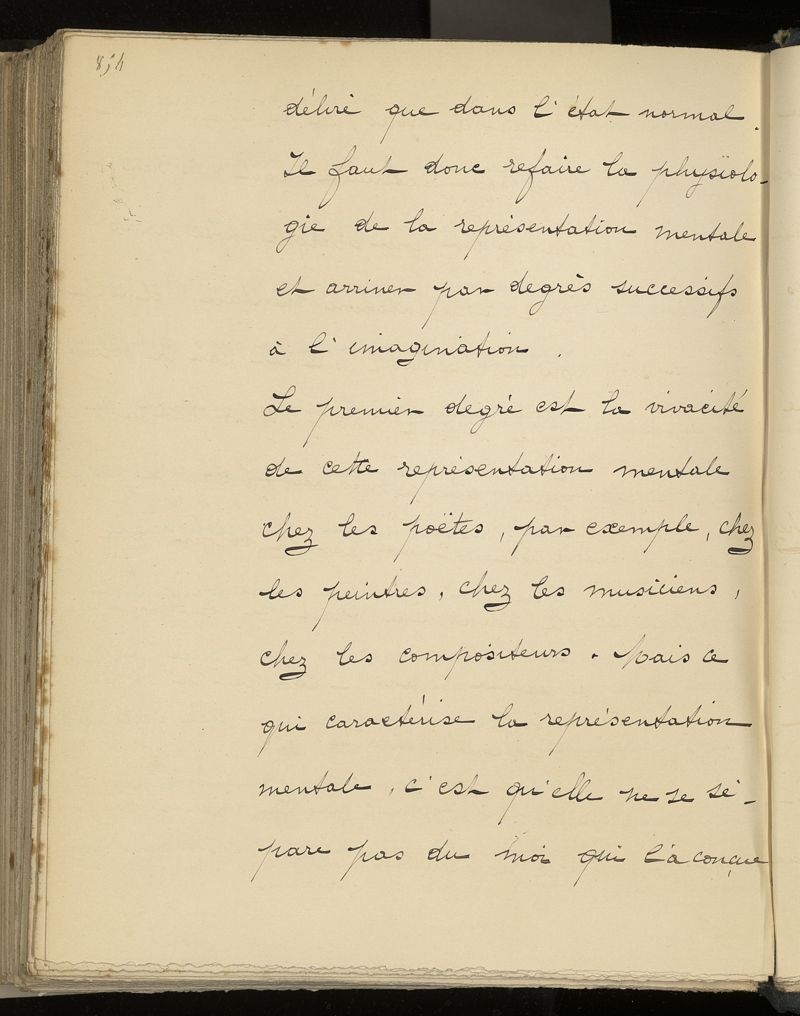 854
délire que dans l'état normal.
Il faut donc refaire la physiolo-
gie de la représentation mentale
et arriver par degrès successifs
à l'imagination.
Le premier degré est la vivacité
de cette représentation mentale
chez les poëtes, par exemple, chez
les peintres, chez les musiciens,
chez les compositeurs. Mais ce
qui caractérise la représentation
mentale, c'est qu'elle ne se sé-
pare pas du moi qui l'a conçue